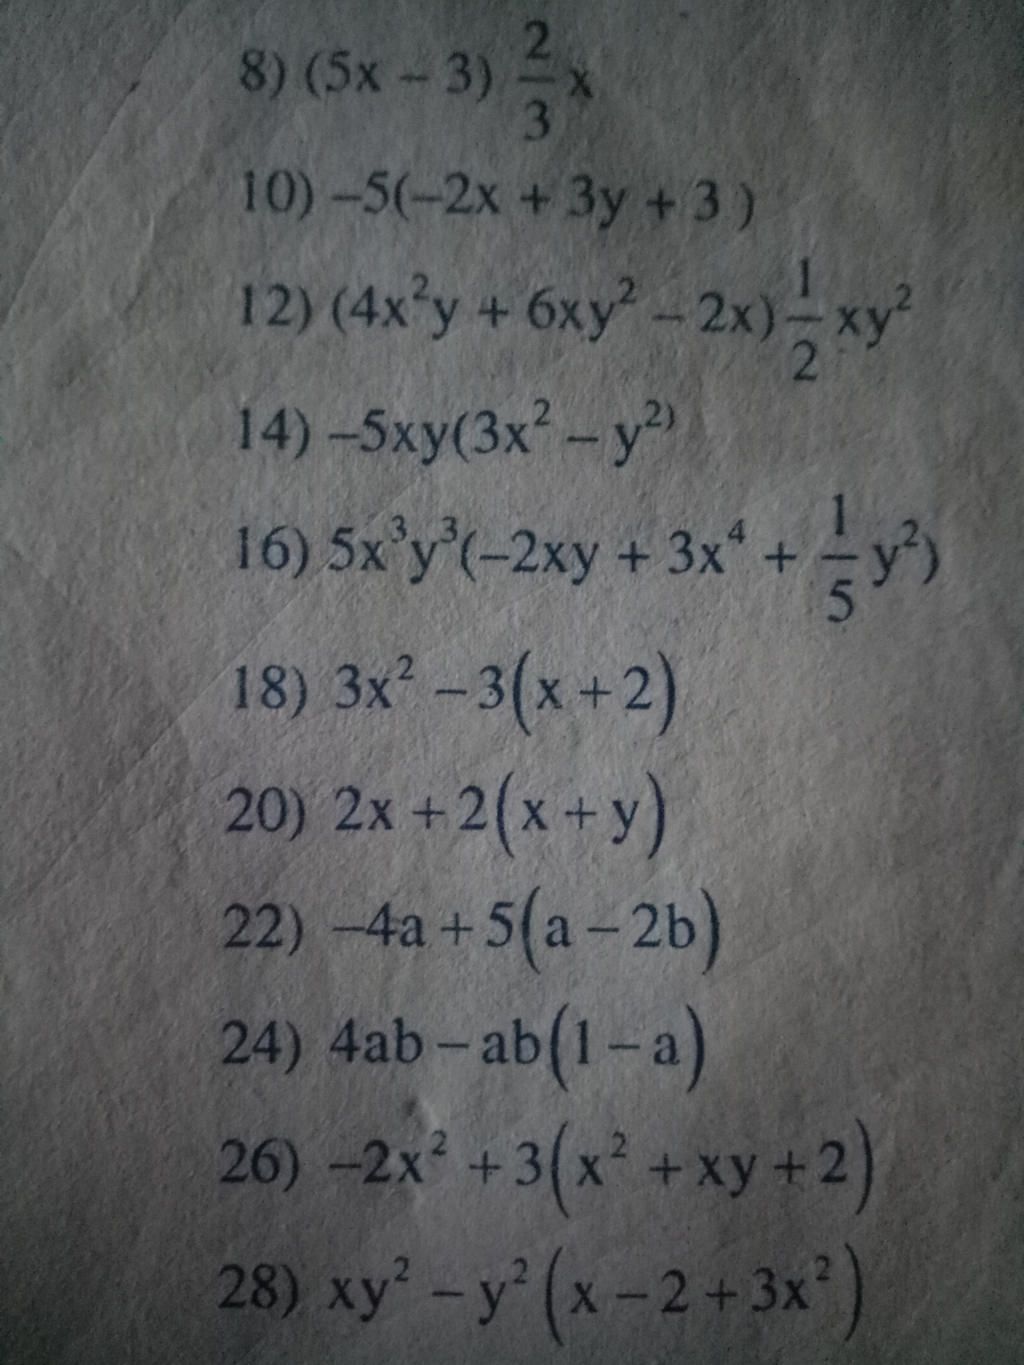 8) (5x – 3) 2/3 x
10) –5(–2x + 3y + 3 )
12) (4x²y + 6xy² – 2x) 1/2 xy²
14) –5xy(3x² – y²⁾
16) 5x³y³(–2xy + 3x⁴ + 1/5 y²)
18) 3x² – 3(x + 2)
20) 2x + 2(x + y)
22) –4a + 5(a – 2b)
24) 4ab – ab(1 – a)
26) –2x² + 3(x² + xy + 2)
28) xy² – y² (x – 2 + 3x²)